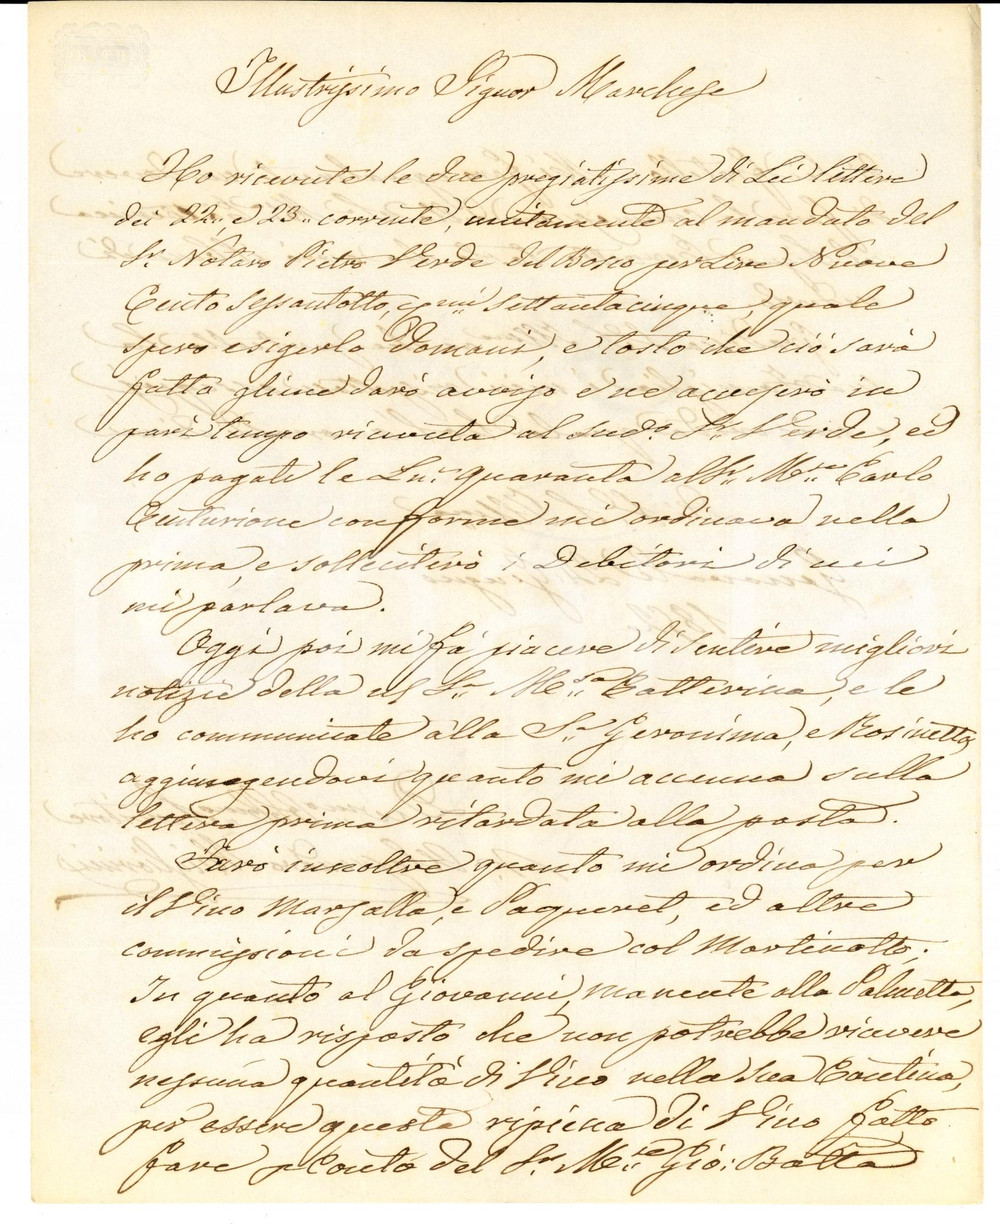 Illustrissimo Signor Marchese
Ho ricevute le due pregiatissime di Lei lettere
dei 22. e 23. corrente, unitamente al mandato del
Sr. Notaro Pietro Verde del Bosco per Lire Nuove
Cento sessantotto, e mi. settantacinque, quale
spero esigerlo Domani, e tosto che ciò sarà
fatto gliene darò avviso e ne accuserò in
pari tempo ricevuta al sudo. Sr. Verde, ed
ho pagati le Ln. quaranta al Sr. Mse. Carlo
Centurione conforme mi ordinava nella
prima, e solleciterò i Debitori di cui
mi parlava.
Oggi poi mi fà piacere di sentire migliori
notizie della Sra. Msa. Catterina, e le
ho communicate alla Sra. Geronima, e Rosinetta
aggiungendovi quanto mi accenna sulla
lettera prima ritardata alla posta.
Farò inoltre quanto mi ordina per
il Vino Marsalla, e Paqueret, ed altre
commissioni da spedire col Martinotto.
In quanto al Giovanni, manente alla Palmetta,
egli ha risposto che non potrebbe ricevere
nessuna quantità di Vino nella sua Cantina,
per essere questa ripiena di Vino fatto
fare p Conto del Sr. Mse. Gio: Batta